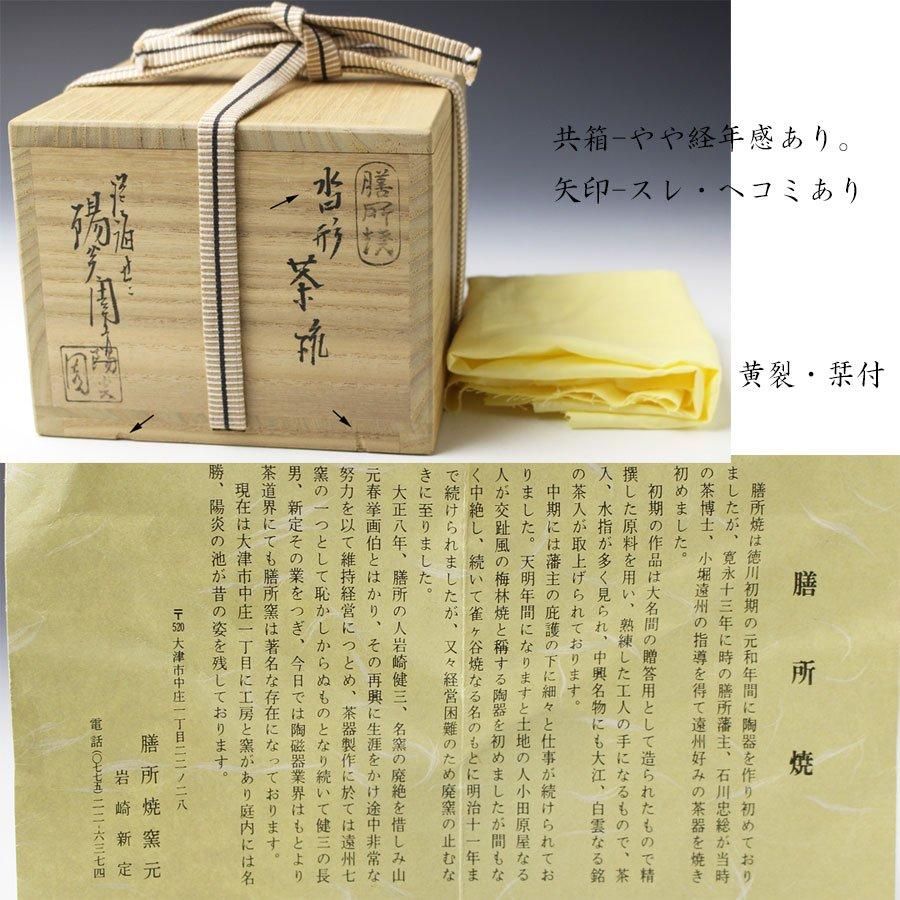 共箱-やや経年感あり。
矢印-スレ・ヘコミあり
膳所焼
沓形
茶碗
陽炎園
黄裂・栞付
膳所焼
膳所焼は徳川初期の元和年間に陶器を作り初めており
ましたが、寛永十三年に時の膳所藩主、石川忠総が当時
の茶博士、小堀遠州の指導を得て遠州好みの茶器を焼き
初めました。
初期の作品は大名間の贈答用として造られたもので精
撰した原料を用い、熟練した工人の手になるもので、茶
入、水指が多く見られ、中興名物にも大江、白雲なる銘
の茶人が取上げられております。
中期には藩主の庇護の下に細々と仕事が続けられてお
りました。天明年間になりますと土地の人小田原屋なる
人が交趾風の梅林焼と稱する陶器を初めましたが間もな
く中絶し、続いて雀ヶ谷焼なる名のもとに明治十一年ま
で続けられましたが、又々経営困難のため廃窯の止むな
きに至りました。
大正八年、膳所の人岩崎健三、名窯の廃絶を惜しみ山
元春挙画伯とはかり、その再興に生涯をかけ途中非常な
努力を以て維持経営につとめ、茶器製作に於ては遠州七
窯の一つとして恥かしからぬものとなり続いて健三の長
男、新定その業をつぎ、今日では陶磁器業界はもとより
茶道界にても膳所窯は著名な存在になっております。
現在は大津市中庄一丁目に工房と窯があり庭内には名
勝、陽炎の池が昔の姿を残しております。
〒520 大津市中庄一丁目二二ノ二八
膳所焼窯元
岩崎新定
電話(〇七七五)二二-六三七四